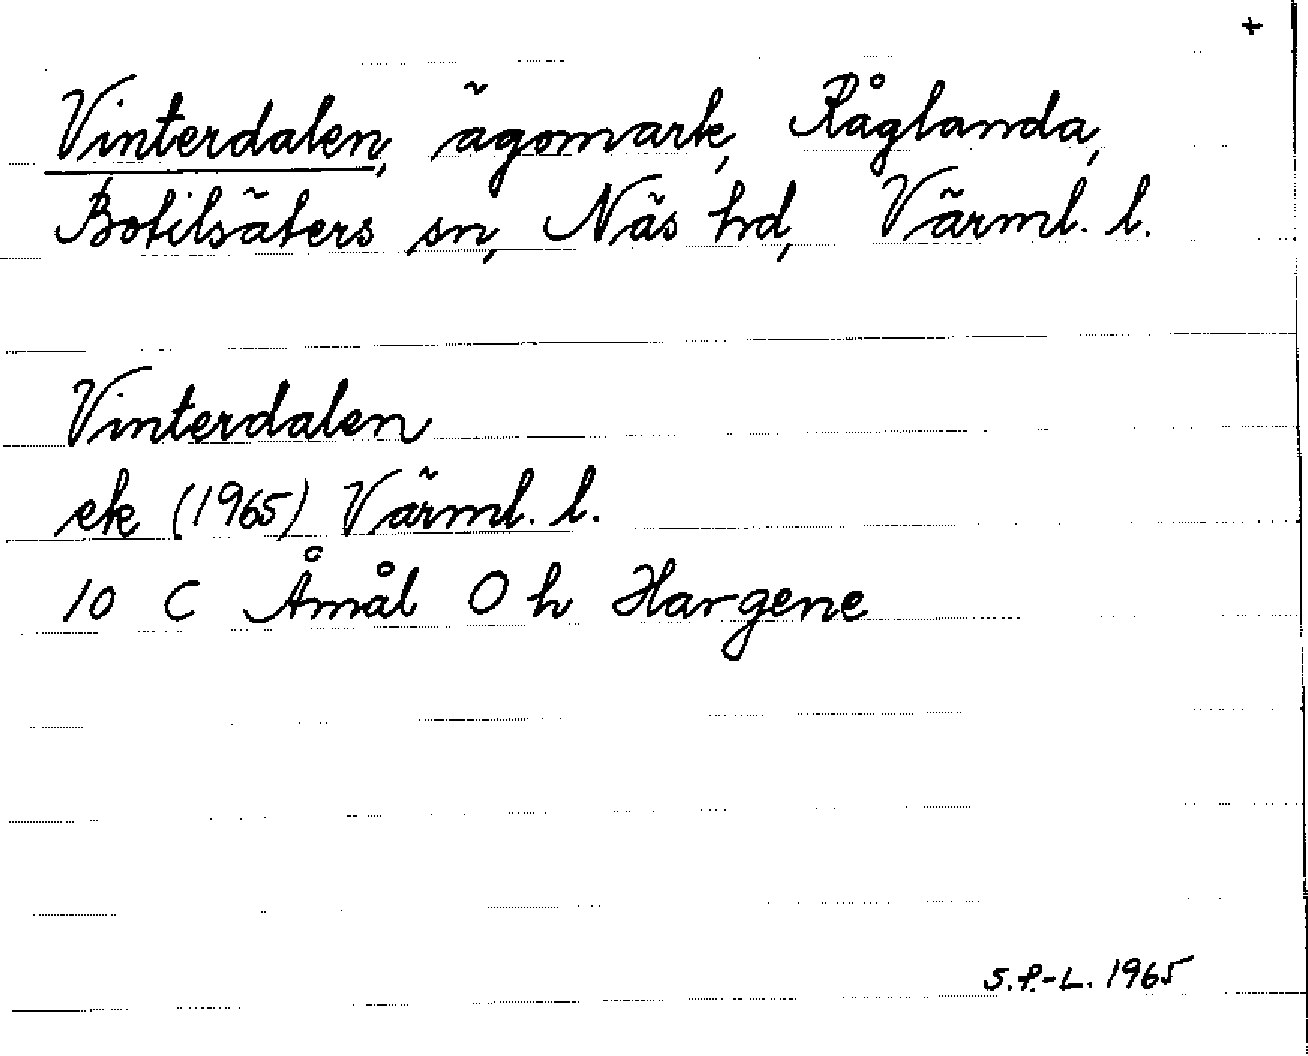 +
Vinterdalen, ägomark, Råglanda,
Botilsäters sn, Näs hd, Värml. l.
Vinterdalen
ek (1965) Värml. l.
10 C Åmål 0 h Hargene
S.P.-L. 1965